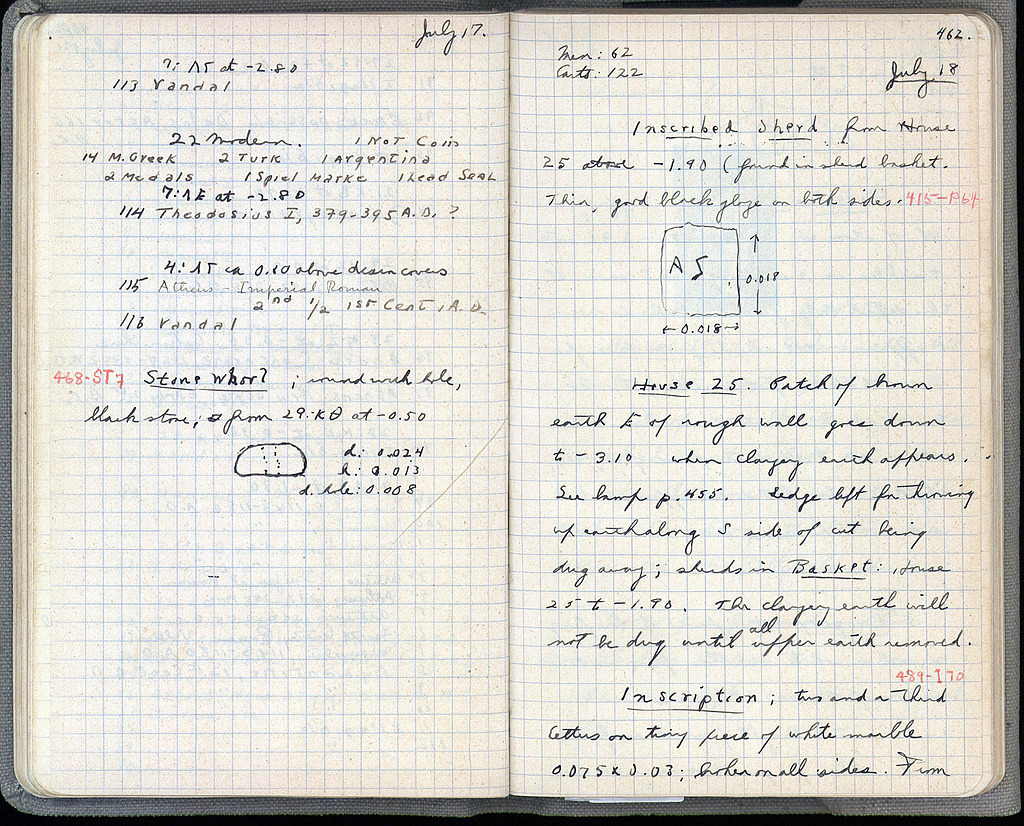 July 17.
7: ΛΓ at -2.80
113 Vandal
22 Modern. 1 Not Coin
14 M. Greek 2 Turk 1 Argentina
2 Medals 1 Spiel Marke 1 Lead Seal
7: ΛE at -2.80
114 Theodosius I, 379-395 A.D. ?
4: ΛΓ ca 0.10 above drain covers
115 Athens - Imperial Roman
2nd 1/2 1st Cent, A.D.
116 Vandal
468-ST7 Stone Whorl ; round with hole,
black stone; from 29: KΘ at -0.50
d.: 0.024
h.: 0.013
d. hole: 0.008
462.
Men: 62
Carts: 122
July 18
Inscribed Sherd from House
25 -1.90 (found in sherd basket.
Thin, good black glaze on both sides. 415-P64
0.018
0.018
House 25. Patch of brown
earth E of rough wall goes down
to -3.10 when clayey earth appears.
See lamp p. 455. Ledge left for throwing
up earth along S side of cut being
dug away; sherds in Basket: House
25 to -1.90. The clayey earth will
not be dug until all upper earth removed.
489-I70
Inscription; two and a third
letters on tiny piece of white marble
0.075 x 0.03; broken on all sides. From